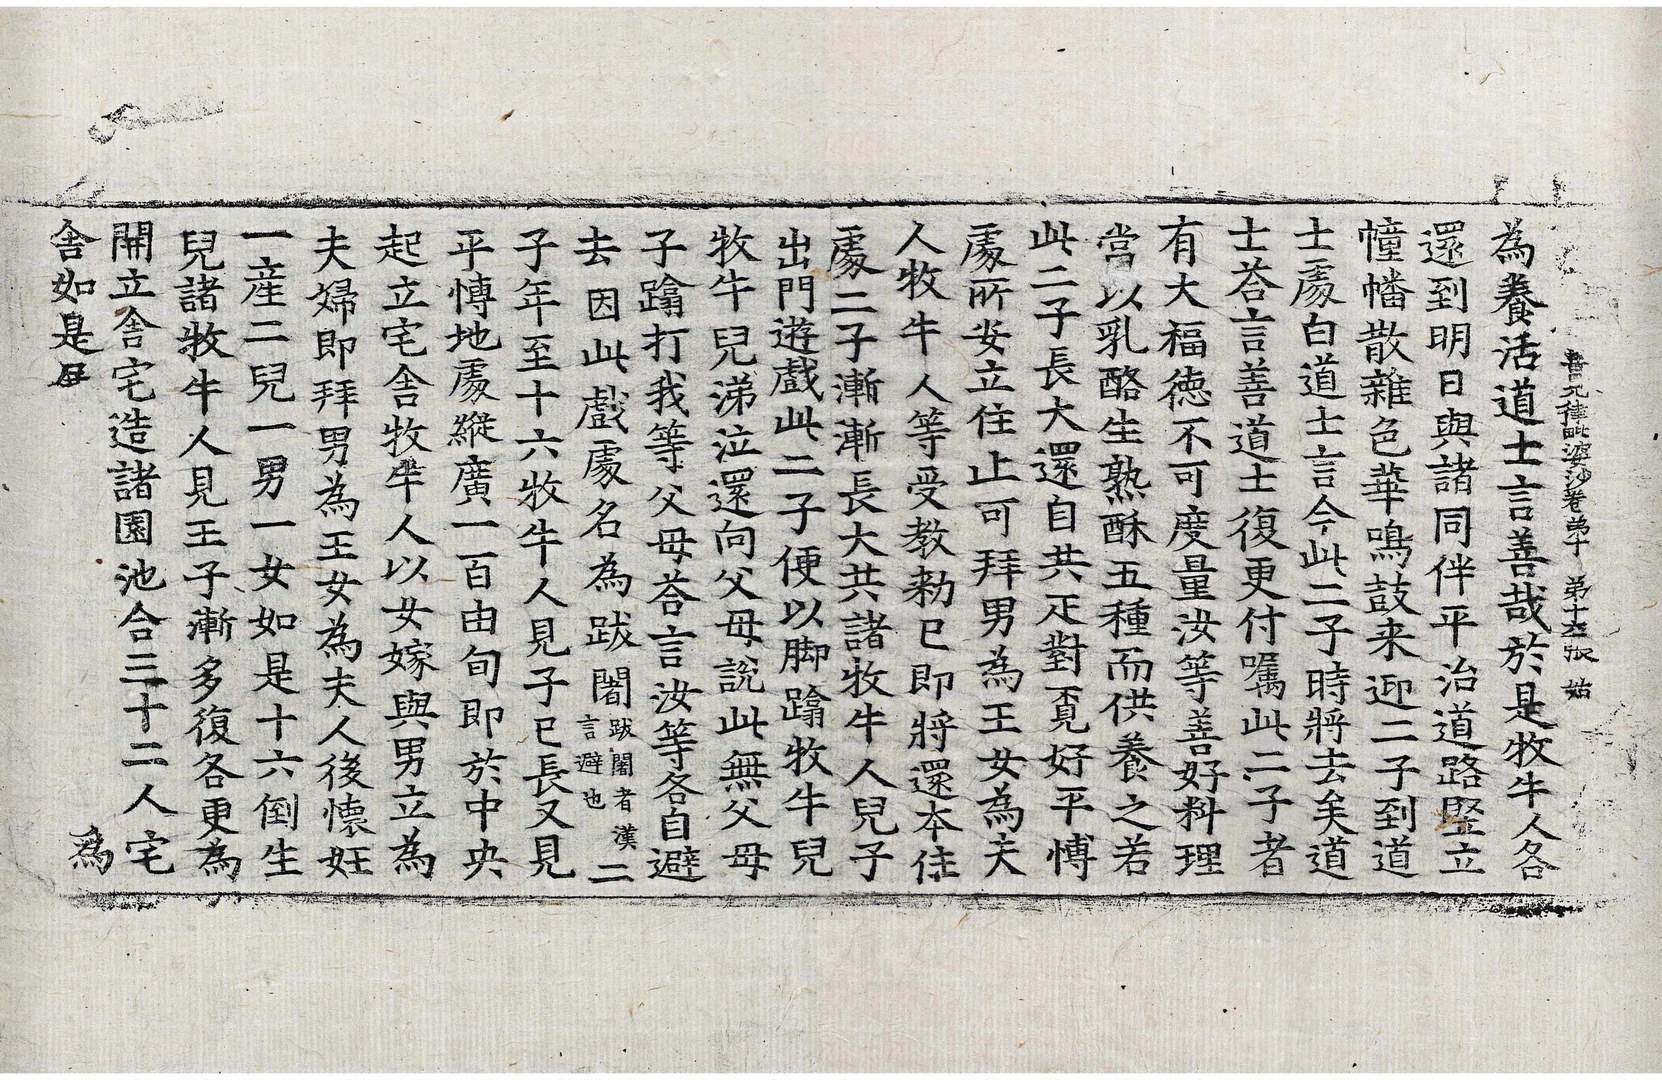 善見律毗婆沙卷第十　第十五張　姑
為養活道士言善哉於是牧牛人各
還到明日與諸同伴平治道路竪立
幢幡散雜色華鳴鼓来迎二子到道
士處白道士言今此二子時將去矣道
士荅言善道士復更付囑此二子者
有大福德不可度量汝等善好料理
當以乳酪生熟酥五種而供養之若
此二子長大還自共疋對覓好平博
處所安立住止可拜男為王女為夫
人牧牛人等受教勑已即將還本住
處二子漸漸長大共諸牧牛人兒子
出門遊戲此二子便以脚蹹牧牛兒
牧牛兒涕泣還向父母說此無父母
子蹹打我等父母荅言汝等各自避
去因此戲處名為跋闍跋闍者漢言避也二
子年至十六牧牛人見子已長又見
平博地處縱廣一百由旬即於中央
起立宅舍牧牛人以女嫁與男立為
夫婦即拜男為王女為夫人後懷妊
一產二兒一男一女如是十六倒生
兒諸牧牛人見王子漸多復各更為
開立舍宅造諸園池合三十二人宅
舍如是展　為